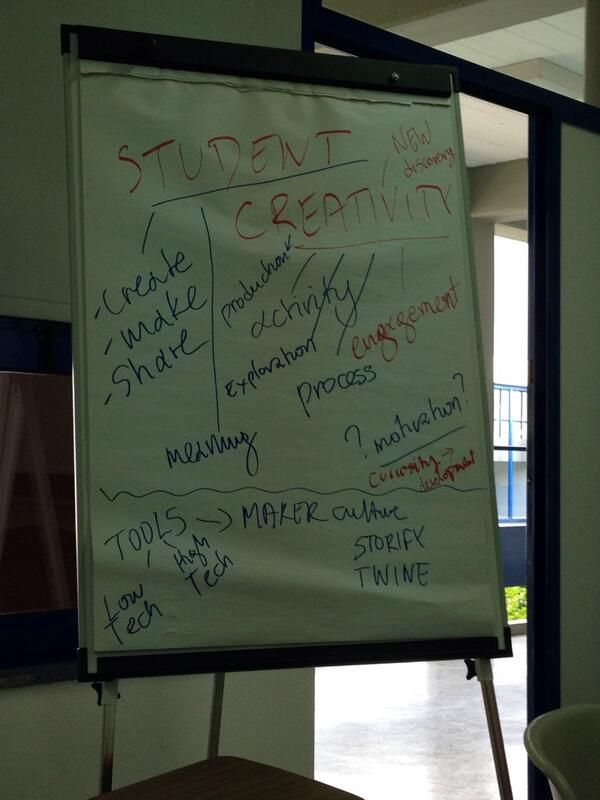 STUDENT
NEW
discovery
CREATIVITY
- Create
- make
- Share
production
activity
engagement
Exploration
process
meaning
? motivation?
curiosity →
development
TOOLS → MAKER culture
High
Tech
Low
Tech
STORIFY
TWINE